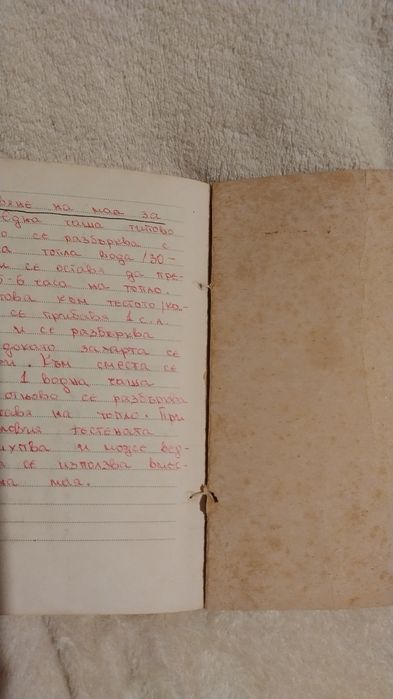 вяне на мая за
една чаша типово
о се разбърква с
а топла вода /30-
и се оставя да пре-
5-6 часа на топло.
това към тестото /ка-
се прибавя 1 с.л.
и се разбърква
докато захарта се
и. Към сместа се
1 водна чаша
отново се разбърква
тавя на топло. При
ловия тестената
ихва и може вед-
я се използва вмес-
на мая.